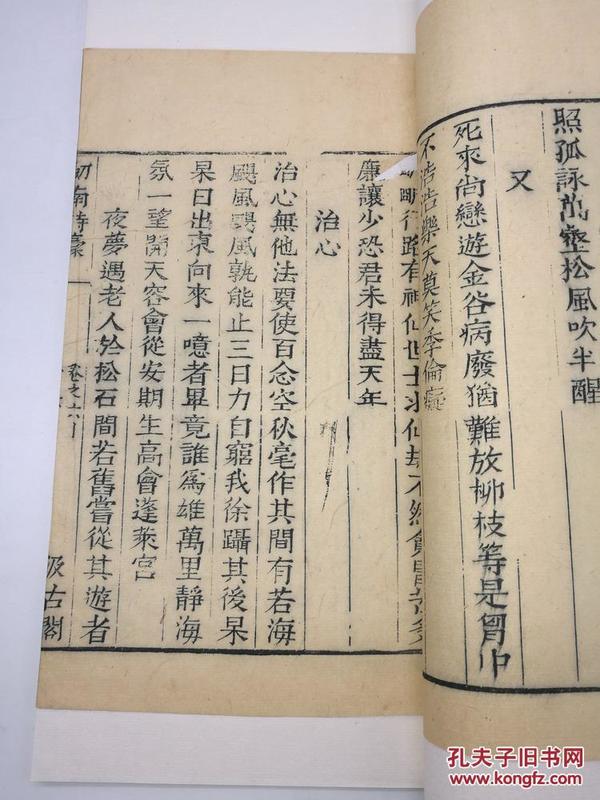 照孤詠萬壑松風吹半醒
又
死來尚戀遊金谷病廢猶難放柳枝等是胷中
不浩浩樂天莫笑季倫癡
行路有神仙世士求仙却不然貪冒苦多
廉讓少恐君未得盡天年
治心
治心無他法要使百念空秋毫作其間有若海
颶風颶風孰能止三日力自窮我徐躡其後杲
杲日出東向來一噫者畢竟誰爲雄萬里靜海
氛一望開天容會從安期生高會蓬萊宮
夜夢遇老人於松石間若舊嘗從其遊者
劒南詩藁
卷之六十
汲古閣
孔夫子旧书网
www.kongfz.com